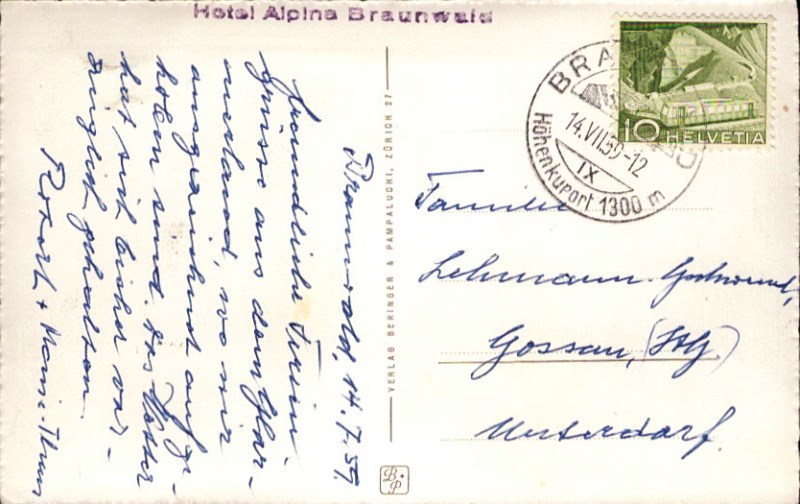 Hotel Alpina Braunwald
Braunwald, 14.7.59.
freundliche Ferien-
grüsse aus dem Glar-
nerland, wo wir
ausgezeichnet aufge-
hoben sind. Das Wetter
hat sich bisher vor-
züglich gehalten.
Robert + Thum
VERLAG BERINGER & PAMPALUCHI, ZÜRICH 27
B P
BRA D
14.VII.59-12
IX
Höhenkurort 1300 m
10 HELVETIA
Familie
Lehmann-Gschwend,
Gossau, (StG)
Unterdorf.